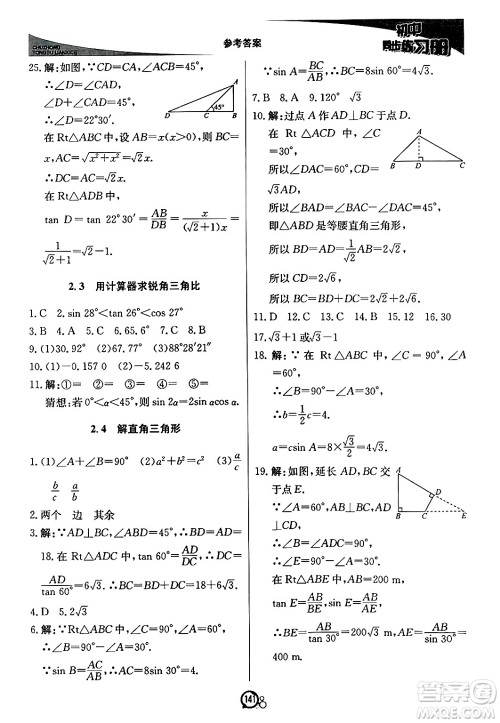 CHUZHONG
TONGBU LIANXICE
参考答案
初中
同步练习册
25. 解:如图,∵CD=CA,
∴∠D=∠CAD,
∠D+∠CAD=45°,
∴∠D=22°30′.
在 Rt△ABC 中,设 AB=x(x>0),则 BC=
x,AC=√(x²+x²)=√2x.
在 Rt△ADB 中,
tan D=tan 22°30′=AB/DB=x/((√2+1)x)=
1/(√2+1)=√2-1.
45°
2.3 用计算器求锐角三角比
1. C 2. sin 28°<tan26°<cos 27°
3. 70.5 4. B 5. C 6. 65.6° 7. B 8. C
9. (1)30.92° (2)67.83° (3)88°28′21″
10. (1)-0.157 0 (2)-5.242 6
11. 解:①= ②= ③= ④= ⑤=
猜想:若0°<α<45°,则 sin 2α=2sin αcos α.
2.4 解直角三角形
1. (1)∠A+∠B=90° (2)a²+b²=c² (3)a/c
b/c a/b
2. 两个 边 其余
3. 解:∵AD⊥BC,∠ABD=45°,∴AD=BD=
18. 在 Rt△ADC 中,tan 60°=AD/DC,∴DC=
AD/tan 60°=6√3. ∴BC=BD+DC=18+6√3.
4. D 5. 2√3
6. 解:如图,在 Rt△ABC 中,∠C=90°,
∵sin B=AC/AB,∴AC=8sin 30°=4.
∵sin A=BC/AB,∴BC=8sin 60°=4√3.
7. B 8. A 9. 120° √3
10. 解:过点 A 作 AD⊥BC 于点 D.
在 Rt △ADC 中,∠C=30°,
所以∠DAC=60°,CD=
√3AD.
所以∠BAD=∠BAC-∠DAC=45°,
即△ABD 是等腰直角三角形.
所以 BD=AD=1/√2AB=2.
所以 BC=2+2√3.
A
B D C
11. C 12. A 13. B 14. B 15. C 16. 30
17. √3+1 或√3-1
18. 解:∵在 Rt△ABC 中,∠C=90°,
∴∠A=90°-∠B=90°-30°=60°.
∴b=1/2c=√3.
a=csin A=2√3×√3/2=3.
19. 解:如图,延长 AD,BC 交于
点 E.
∵∠B=90°,∠A=60°,
∴∠E=90°-∠A=30°.
在 Rt△ABE 中,AB=200 m,
tan E=AB/BE,sin E=AB/AE,
∴BE=AB/tan 30°=200√3 m,AE=AB/sin 30°=
400 m.
A
D
B C E
141